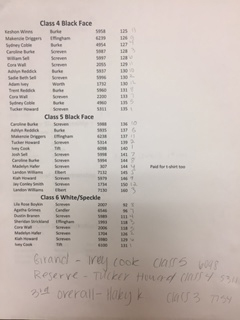 Class 4 Black Face
Keshen Winns Burke 5958 125
Makenzie Driggers Effingham 6239 126
Sydney Coble Burke 4954 127
Caroline Burke Screven 5987 128
William Sell Screven 5997 128
Cora Wall Screven 2055 129
Ashlyn Reddick Burke 5937 130
Sadie Beth Sell Screven 5996 130
Adam Ivey Worth 5732 130
Trent Reddick Burke 5960 131
Cora Wall Screven 2200 133
Sydney Coble Burke 4960 135
Tucker Howard Screven 5311 135
Class 5 Black Face
Caroline Burke Screven 5988 136
Ashlyn Reddick Burke 5935 137
Makenzie Driggers Effingham 6238 137
Tucker Howard Screven 5314 139
Irey Cook Tift 6098 140
Screven 5998 141
Caroline Burke Screven 5994 144
Madelyn Hafer Screven 307 144 Paid for t-shirt too
Landon Williams Elbert 7132 145
Kiah Howard Screven 5979 146
Jay Conley Smith Screven 1734 150
Landon Williams Elbert 7130 160
Class 6 White/Speckle
Lila Rose Boykin Screven 2007 92
Agatha Grimes Candler 9196 98
Dustin Branen Screven 5989 111
Sheridan Strickland Screven 1993 116
Cora Wall Screven 2206 118
Madelyn Hafer Screven 1704 126
Kiah Howard Screven 5980 129
Irey Cook Tift 6100 131
Grand - Irey Cook Class 5
Reserve - Tucker Howard Class 4
3rd overall - class 3